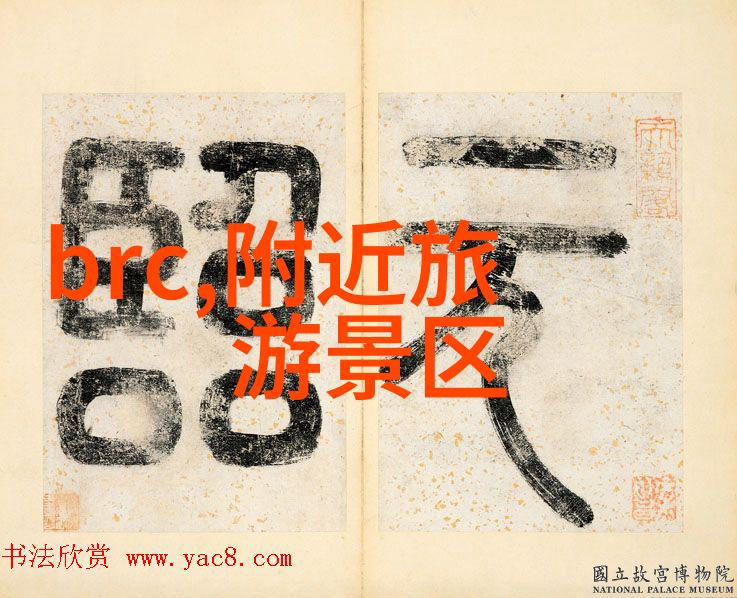 brc,附近旅
游景区
天籟閣
书法欣赏 www.yac8.com
國立故宫博物院
NATIONAL PALACE MUSEUM